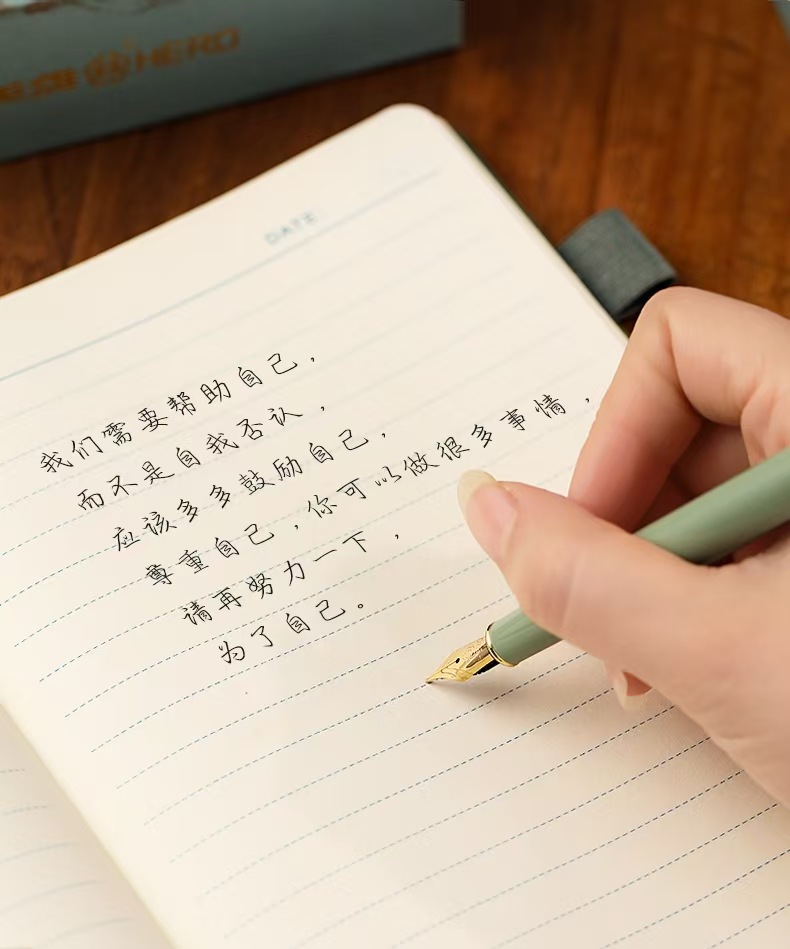 HERO
DATE
我们需要帮助自己，
而不是自我否认，
应该多多鼓励自己，
尊重自己，你可以做很多事情，
请再努力一下，
为了自己。